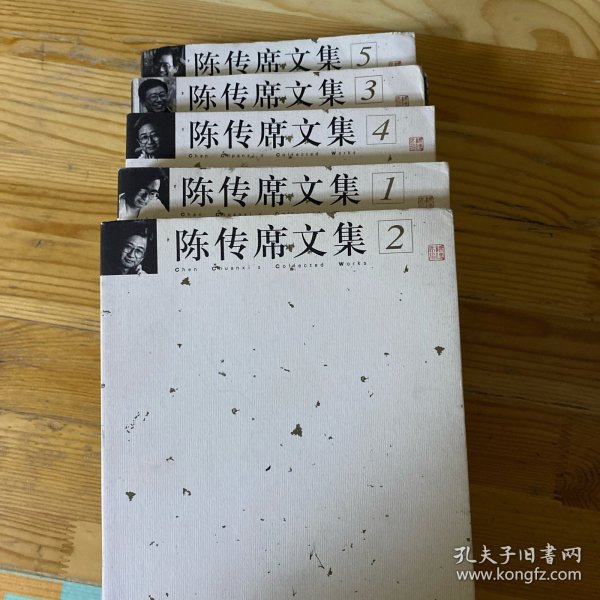 陈传席文集 5
陈传席文集 3
陈传席文集 4
Chen Chuanxi's Collected Works
陈传席文集 1
陈传席文集 2
Chen Chuanxi's Collected Works
孔夫子旧书网
www.kongfz.com